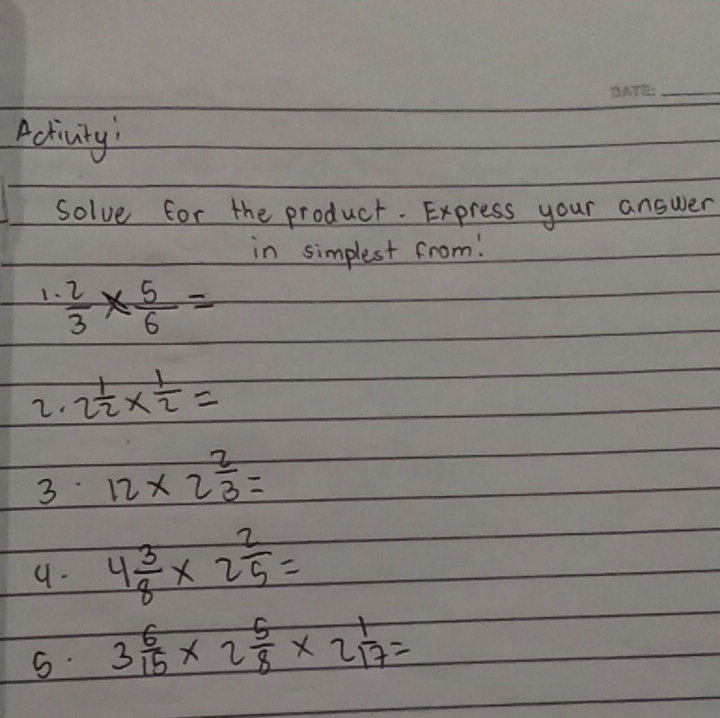 DATE:
Activity:
Solve for the product. Express your answer
in simplest from:
1. 2/3 × 5/6 =
2. 2 1/2 × 1/2 =
3. 12 × 2 2/3 =
4. 4 3/8 × 2 2/5 =
5. 3 6/15 × 2 5/8 × 2 1/17 =